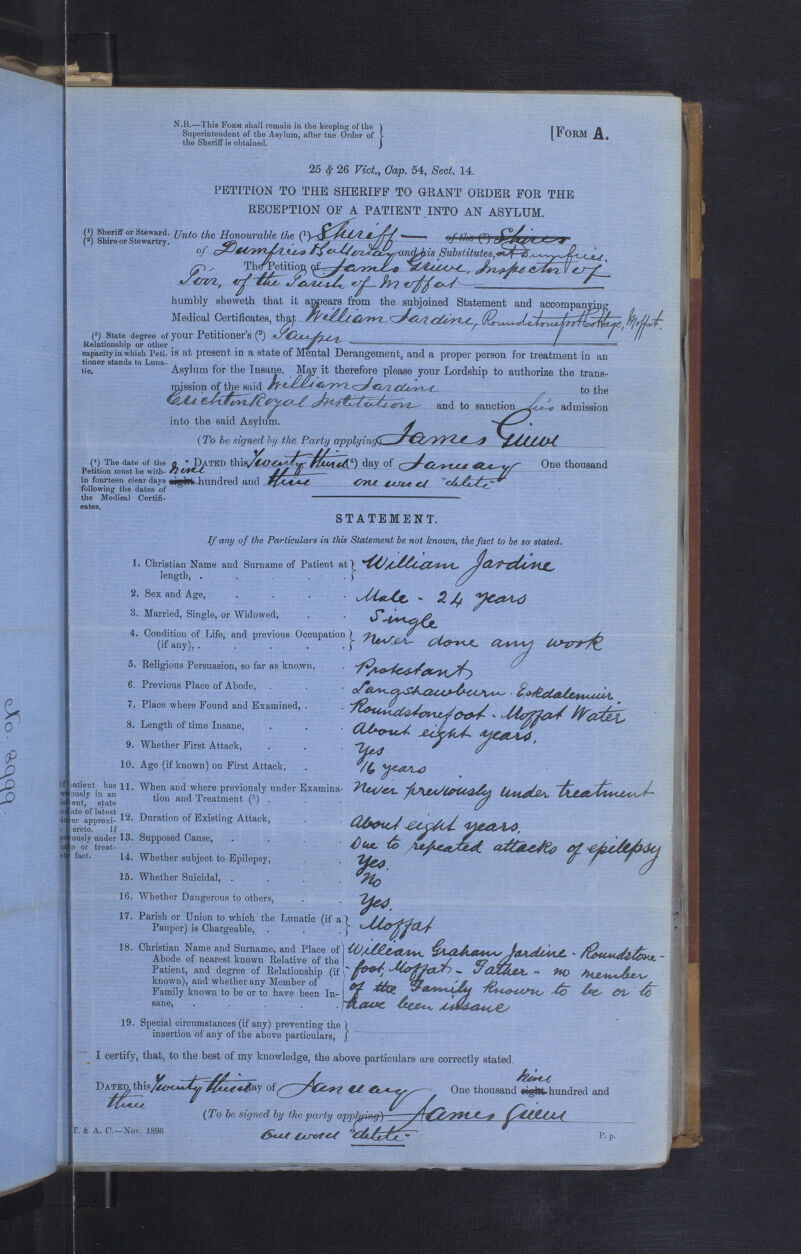 N.B.—This Form shall remain in the keeping of the
Superintendent of the Asylum, after the Order of
the Sheriff is obtained.
[Form A.
25 & 26 Vict., Cap. 54, Sect. 14.
PETITION TO THE SHERIFF TO GRANT ORDER FOR THE
RECEPTION OF A PATIENT INTO AN ASYLUM.
(1) Sheriff or Steward.
(2) Shire or Stewartry.
Unto the Honourable the (1) Sheriff — of the (2) Shires
of Dumfries & Galloway and his Substitutes, at Dumfries.
The Petition of James Grieve, Inspector of
Poor, of the Parish of Moffat
humbly sheweth that it appears from the subjoined Statement and accompanying
Medical Certificates, that William Jardine, Roundstonefoot Cottage, Moffat.
(3) State degree of
Relationship or other
capacity in which Peti-
tioner stands to Luna-
tic.
your Petitioner's (3) Pauper
is at present in a state of Mental Derangement, and a proper person for treatment in an
Asylum for the Insane. May it therefore please your Lordship to authorize the trans-
mission of the said William Jardine to the
Crichton Royal Institution and to sanction his admission
into the said Asylum.
(To be signed by the Party applying) James Grieve
(4) The date of the
Petition must be with-
in fourteen clear days
following the dates of
the Medical Certifi-
cates.
Dated this Twenty third (4) day of January One thousand
nine
eight hundred and three one word "delete"
STATEMENT.
If any of the Particulars in this Statement be not known, the fact to be so stated.
1. Christian Name and Surname of Patient at
length, . William Jardine
2. Sex and Age, Male - 24 years
3. Married, Single, or Widowed, Single
4. Condition of Life, and previous Occupation
(if any), . never done any work
5. Religious Persuasion, so far as known, Protestant
6. Previous Place of Abode, . Langshawburn - Eskdalemuir.
7. Place where Found and Examined, . Roundstonefoot - Moffat Water
8. Length of time Insane, About eight years.
9. Whether First Attack, Yes
10. Age (if known) on First Attack, 16 years
If patient has
previously in an
state
date of latest
or approxi-
ereto. If
previously under
or treat-
fact.
11. When and where previously under Examina-
tion and Treatment (5) . Never previously under treatment
12. Duration of Existing Attack, About eight years.
13. Supposed Cause, Due to repeated attacks of epilepsy
14. Whether subject to Epilepsy, Yes.
15. Whether Suicidal, . No
16. Whether Dangerous to others, Yes.
17. Parish or Union to which the Lunatic (if a
Pauper) is Chargeable, . Moffat
18. Christian Name and Surname, and Place of
Abode of nearest known Relative of the
Patient, and degree of Relationship (if
known), and whether any Member of
Family known to be or to have been In-
sane,
William Graham Jardine - Roundstone-
-foot, Moffat - Father - no member
of the Family known to be or to
have been insane
19. Special circumstances (if any) preventing the
insertion of any of the above particulars,
I certify, that, to the best of my knowledge, the above particulars are correctly stated.
Dated, this Twenty third day of January One thousand eight nine hundred and
three
(To be signed by the party applying) James Grieve
One word "delete"
T. & A. C.—Nov. 1896
P. p.
No. 8999.